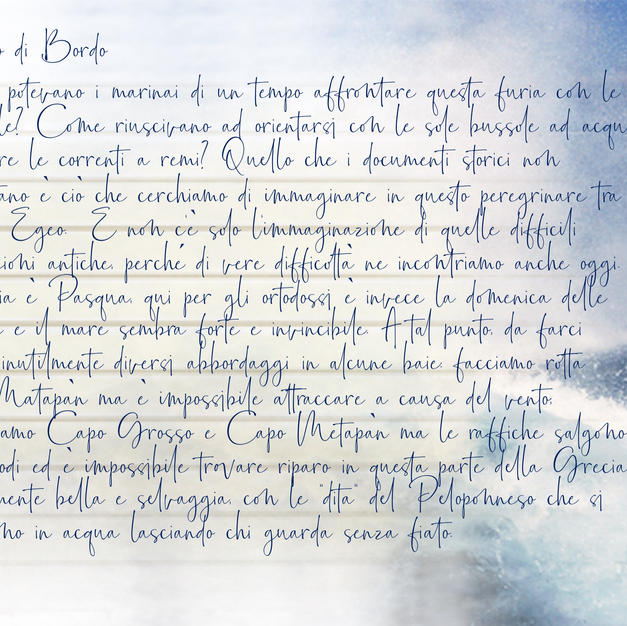 o di Bordo
potevano i marinai di un tempo affrontare questa furia con le
le? Come riuscivano ad orientarsi con le sole bussole ad acqu
re le correnti a remi? Quello che i documenti storici non
ano è ciò che cerchiamo di immaginare in questo peregrinare tra
Egeo. E non c'è solo l'immaginazione di quelle difficili
ioni antiche, perché di vere difficoltà ne incontriamo anche oggi.
ia è Pasqua, qui per gli ortodossi è invece la domenica delle
e il mare sembra forte e invincibile. A tal punto, da farci
inutilmente diversi abbordaggi in alcune baie: facciamo rotta
Matapàn ma è impossibile attraccare a causa del vento;
amo Capo Grosso e Capo Metapàn ma le raffiche salgono
odi ed è impossibile trovare riparo in questa parte della Grecia
mente bella e selvaggia, con le "dita" del Peloponneso che si
no in acqua lasciando chi guarda senza fiato.